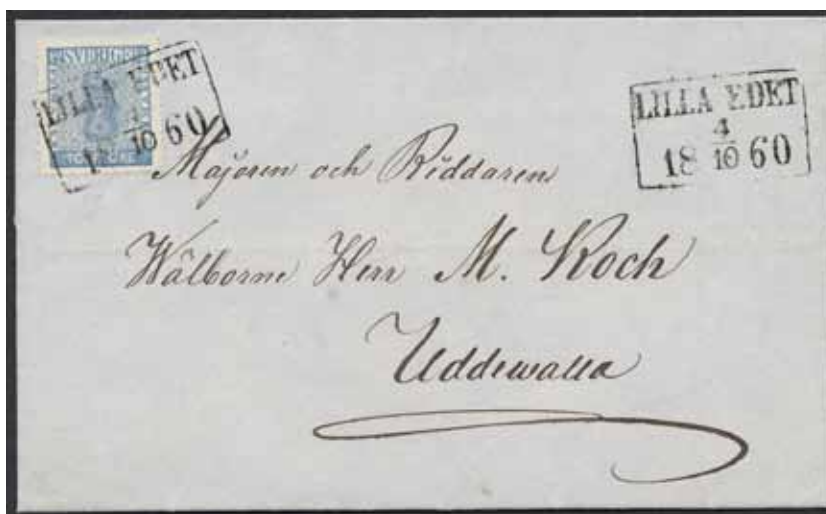 SVERIGE
LILLA EDET
18 10 60
LILLA EDET
4
18 10 60
Majoren och Riddaren
Wälborne Herr M. Koch
Uddewalla